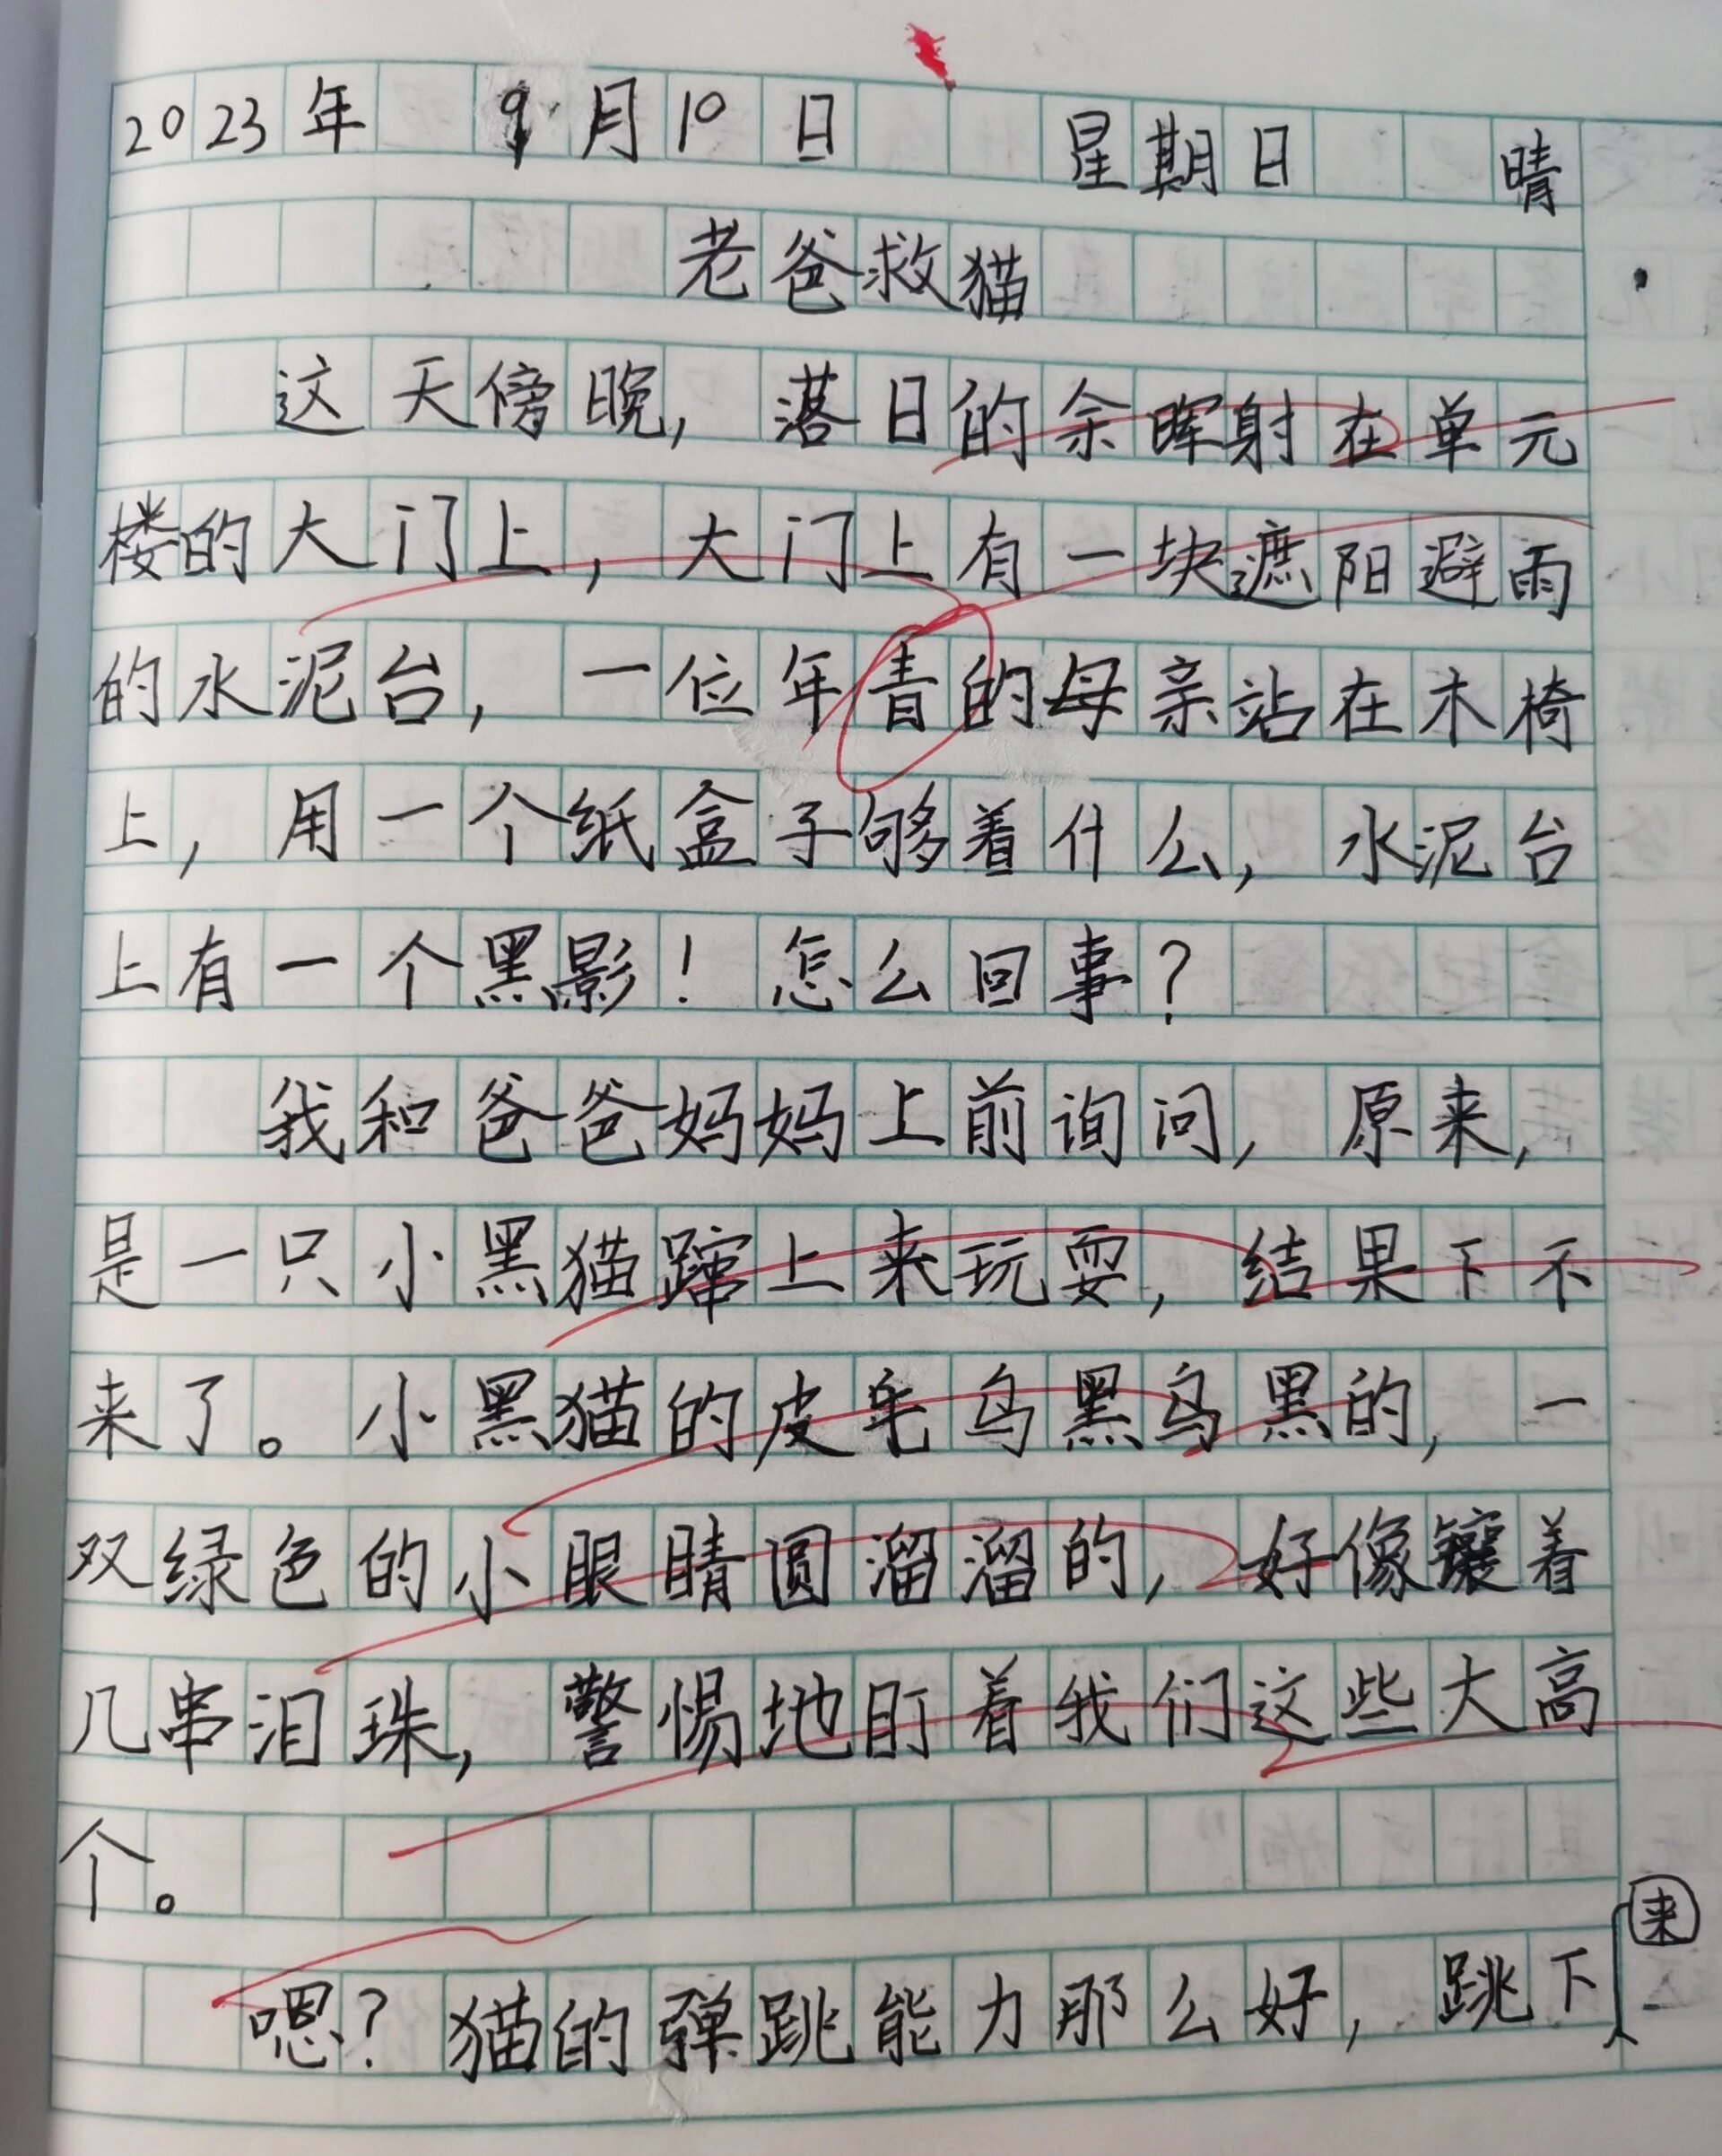 2023年 9月10日 星期日 晴
老爸救猫
这天傍晚，落日的余晖射在单元
楼的大门上，大门上有一块遮阳避雨
的水泥台，一位年青的母亲站在木椅
上，用一个纸盒子够着什么，水泥台
上有一个黑影！怎么回事？
我和爸爸妈妈上前询问，原来，
是一只小黑猫蹿上来玩耍，结果下不
来了。小黑猫的皮毛乌黑乌黑的，一
双绿色的小眼睛圆溜溜的，好像镶着
几串泪珠，警惕地盯着我们这些大高
个。
嗯？猫的弹跳能力那么好，跳下来